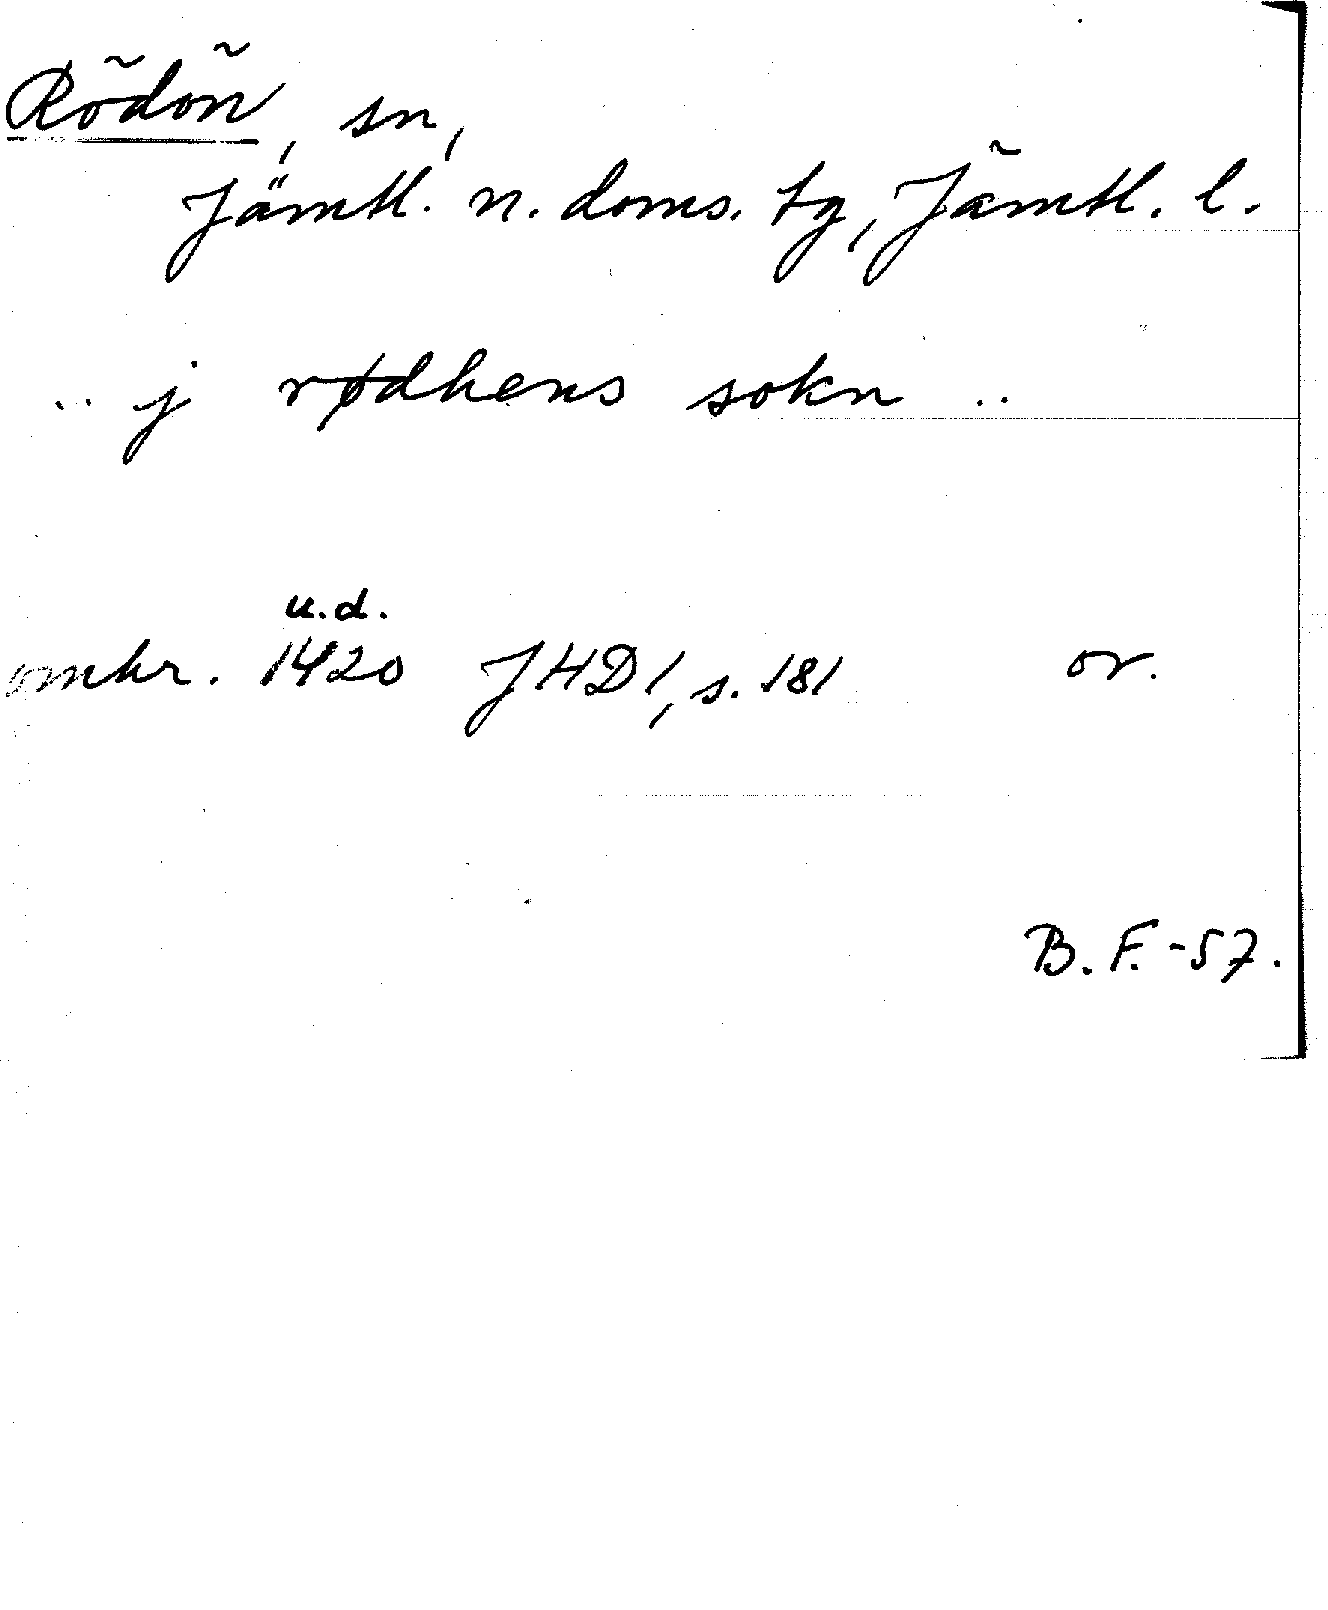 Rödön, sn,
Jämtl. n. doms. tg, Jämtl. l.
.. j rødhens sokn ..
u.d.
omkr. 1420 JHD 1, s. 181 or.
B. F. -57.